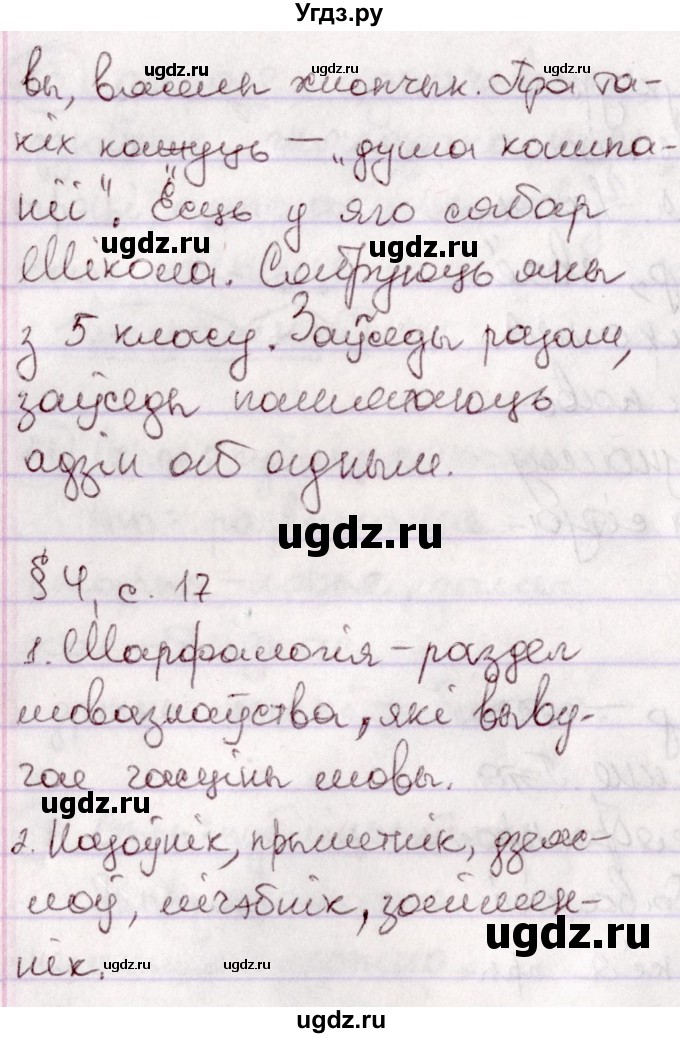 Угдз.ру
вы, вясёлы хлопчык. Пра та-
кіх кажуць – „душа кампа-
ніі". Ёсць у яго сябар
Мікола. Сябруюць яны
з 5 класу. Заўсёды разам,
заўсёды памятаюць
адзін аб адным.
§ 4, с. 17
1. Марфалогія – раздзел
мовазнаўства, які выву-
чае часціны мовы.
2. Назоўнік, прыметнік, дзеяс-
лоў, лічэбнік, займен-
нік.
ugdz.ru
ugdz.ru
ugdz.ru
ugdz.ru
ugdz.ru
ugdz.ru
ugdz.ru
ugdz.ru
ugdz.ru
ugdz.ru